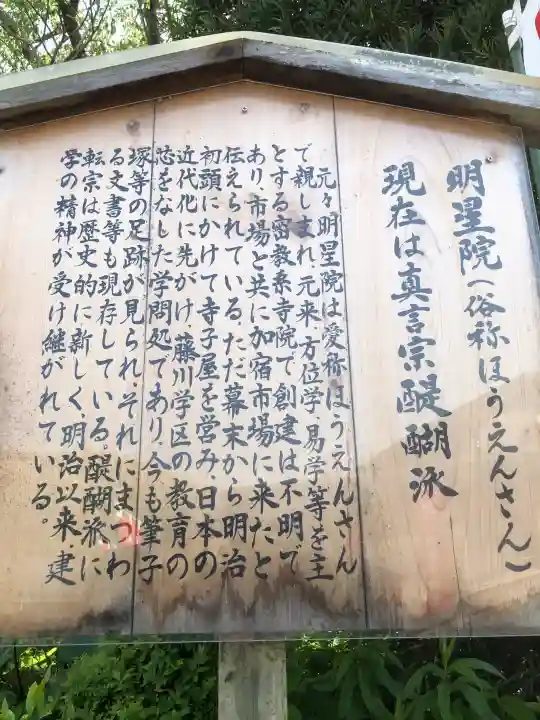 明星院(俗称ほうえんさん)
現在は真言宗醍醐派
元々明星院は愛称ほうえんさん
で親しまれ、元来、方位学、易学等を主
とする密教系寺院で創建は不明で
あり、市場と共に加宿市場に来たと
伝えられている。ただ幕末から明治
初頭にかけて寺子屋を営み、日本の
近代化に先がけ、藤川学区の教育の
芯をなした学問処であり、今も筆子
塚等の足跡が見られ、それにまつわ
る文書等も現存している。醍醐派に
転宗は歴史的に新しく、明治以来、建
学の精神が受け継がれている。